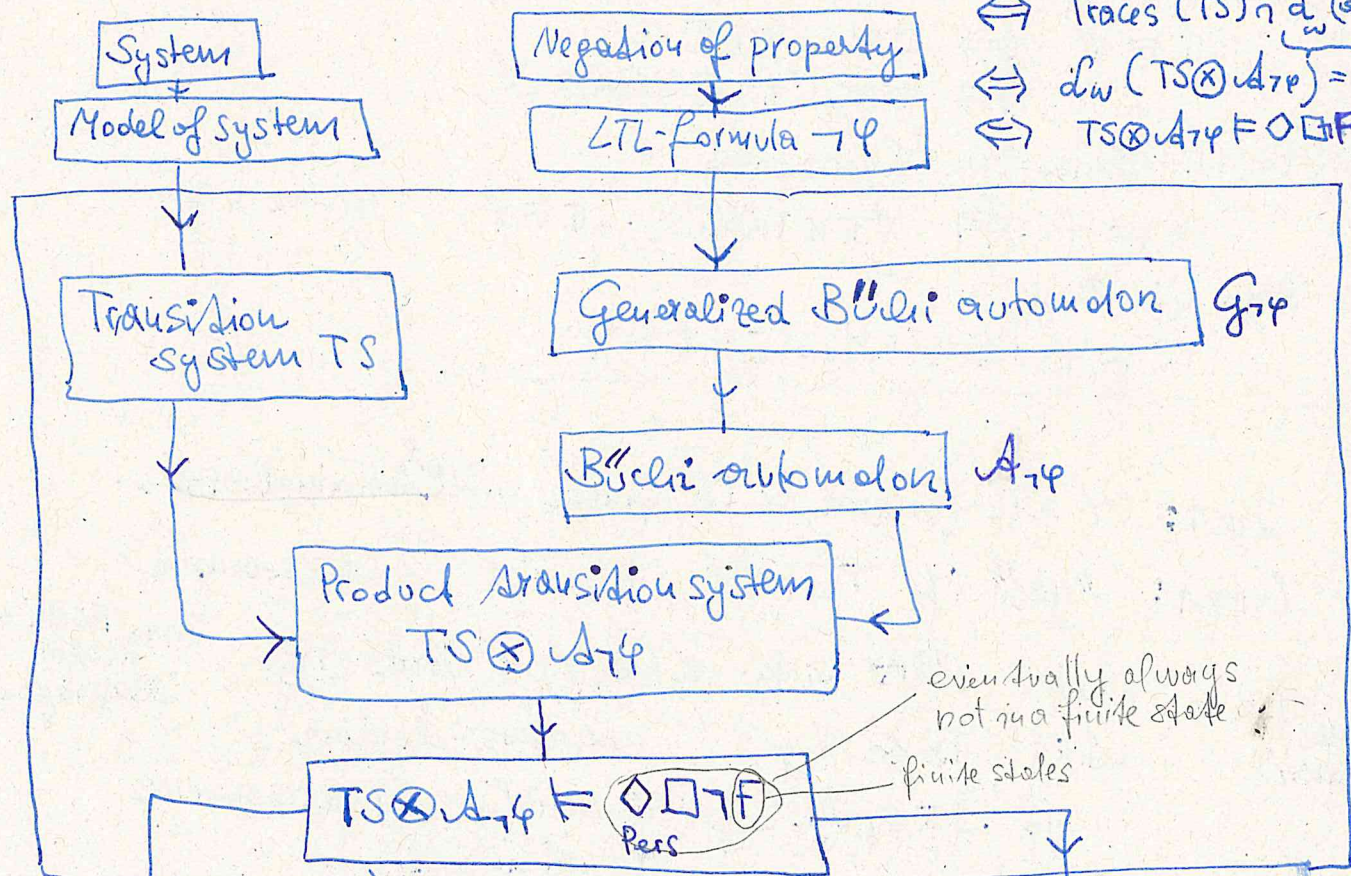 ⇔ Traces (TS) ∩ ℒω (
System
Negation of property
⇔ ℒω (TS⊗A¬φ) =
Model of system
LTL-formula ¬φ
⇔ TS⊗A¬φ ⊨ ◇□¬F
Transition
system TS
Generalized Büchi automaton G¬φ
Büchi automaton A¬φ
Product transition system
TS ⊗ A¬φ
eventually always
not in a finite state
finite states
TS⊗A¬φ ⊨ ◇□¬F
Pers